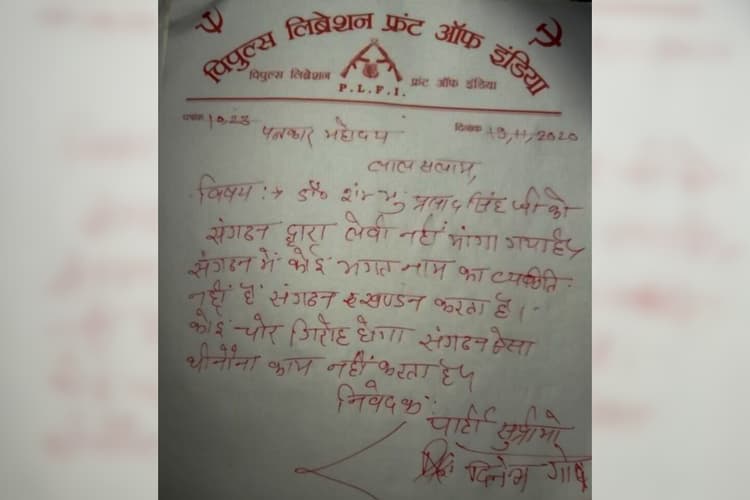 पिपुल्स लिब्रेशन फ्रंट ऑफ इंडिया
पिपुल्स लिब्रेशन फ्रंट ऑफ इंडिया
P.L.F.I.
पत्रांक 1023 दिनांक 19,11,2020
पत्रकार महोदय
लाल सलाम,
विषय :→ डॉ० शम्भु प्रसाद सिंह जी को
संगठन द्वारा लेवी नहीं मांगा गया है
संगठन में कोई भगत नाम का व्यक्ति
नहीं है संगठन खण्डन करता है।
कोई चोर गिरोह होगा संगठन ऐसा
घीनौना काम नहीं करता है
निवेदक
पार्टी सुप्रीमो
दिनेश गोप